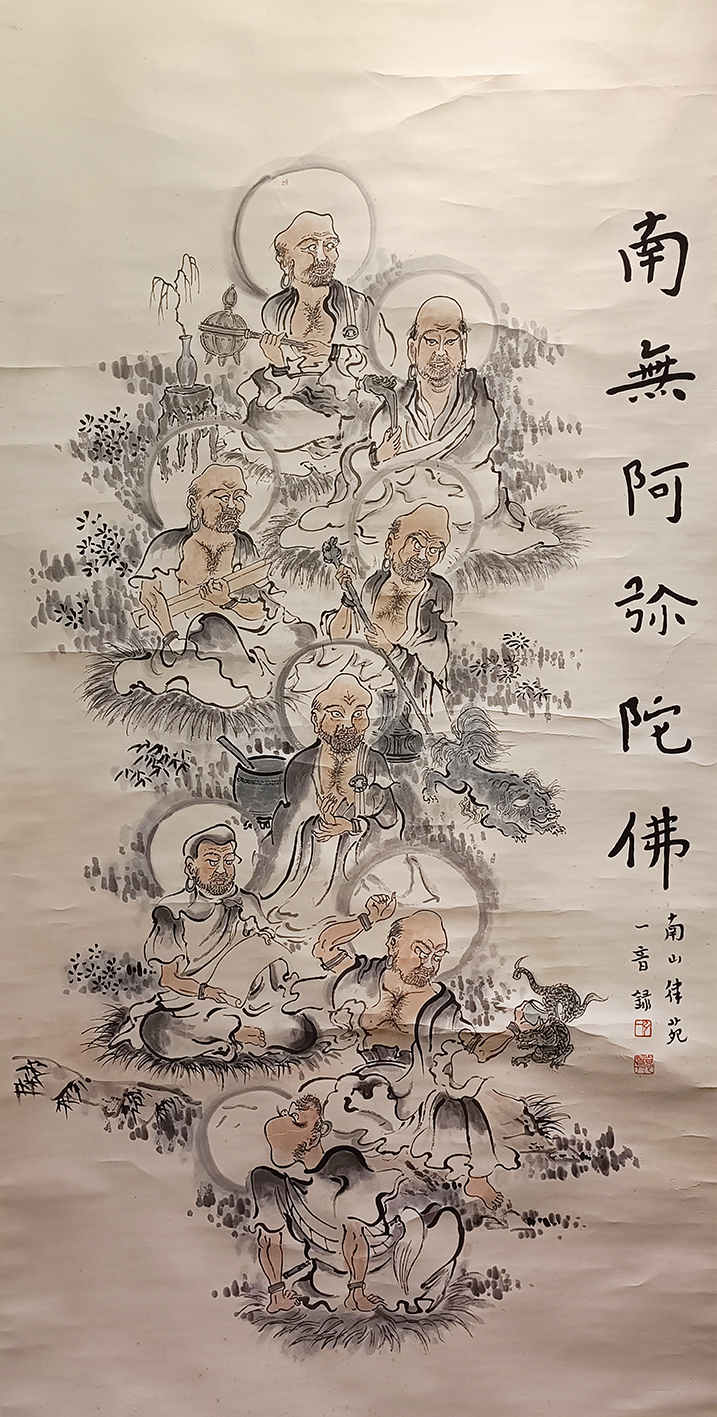 南無阿弥陀佛
南山律苑
一音録